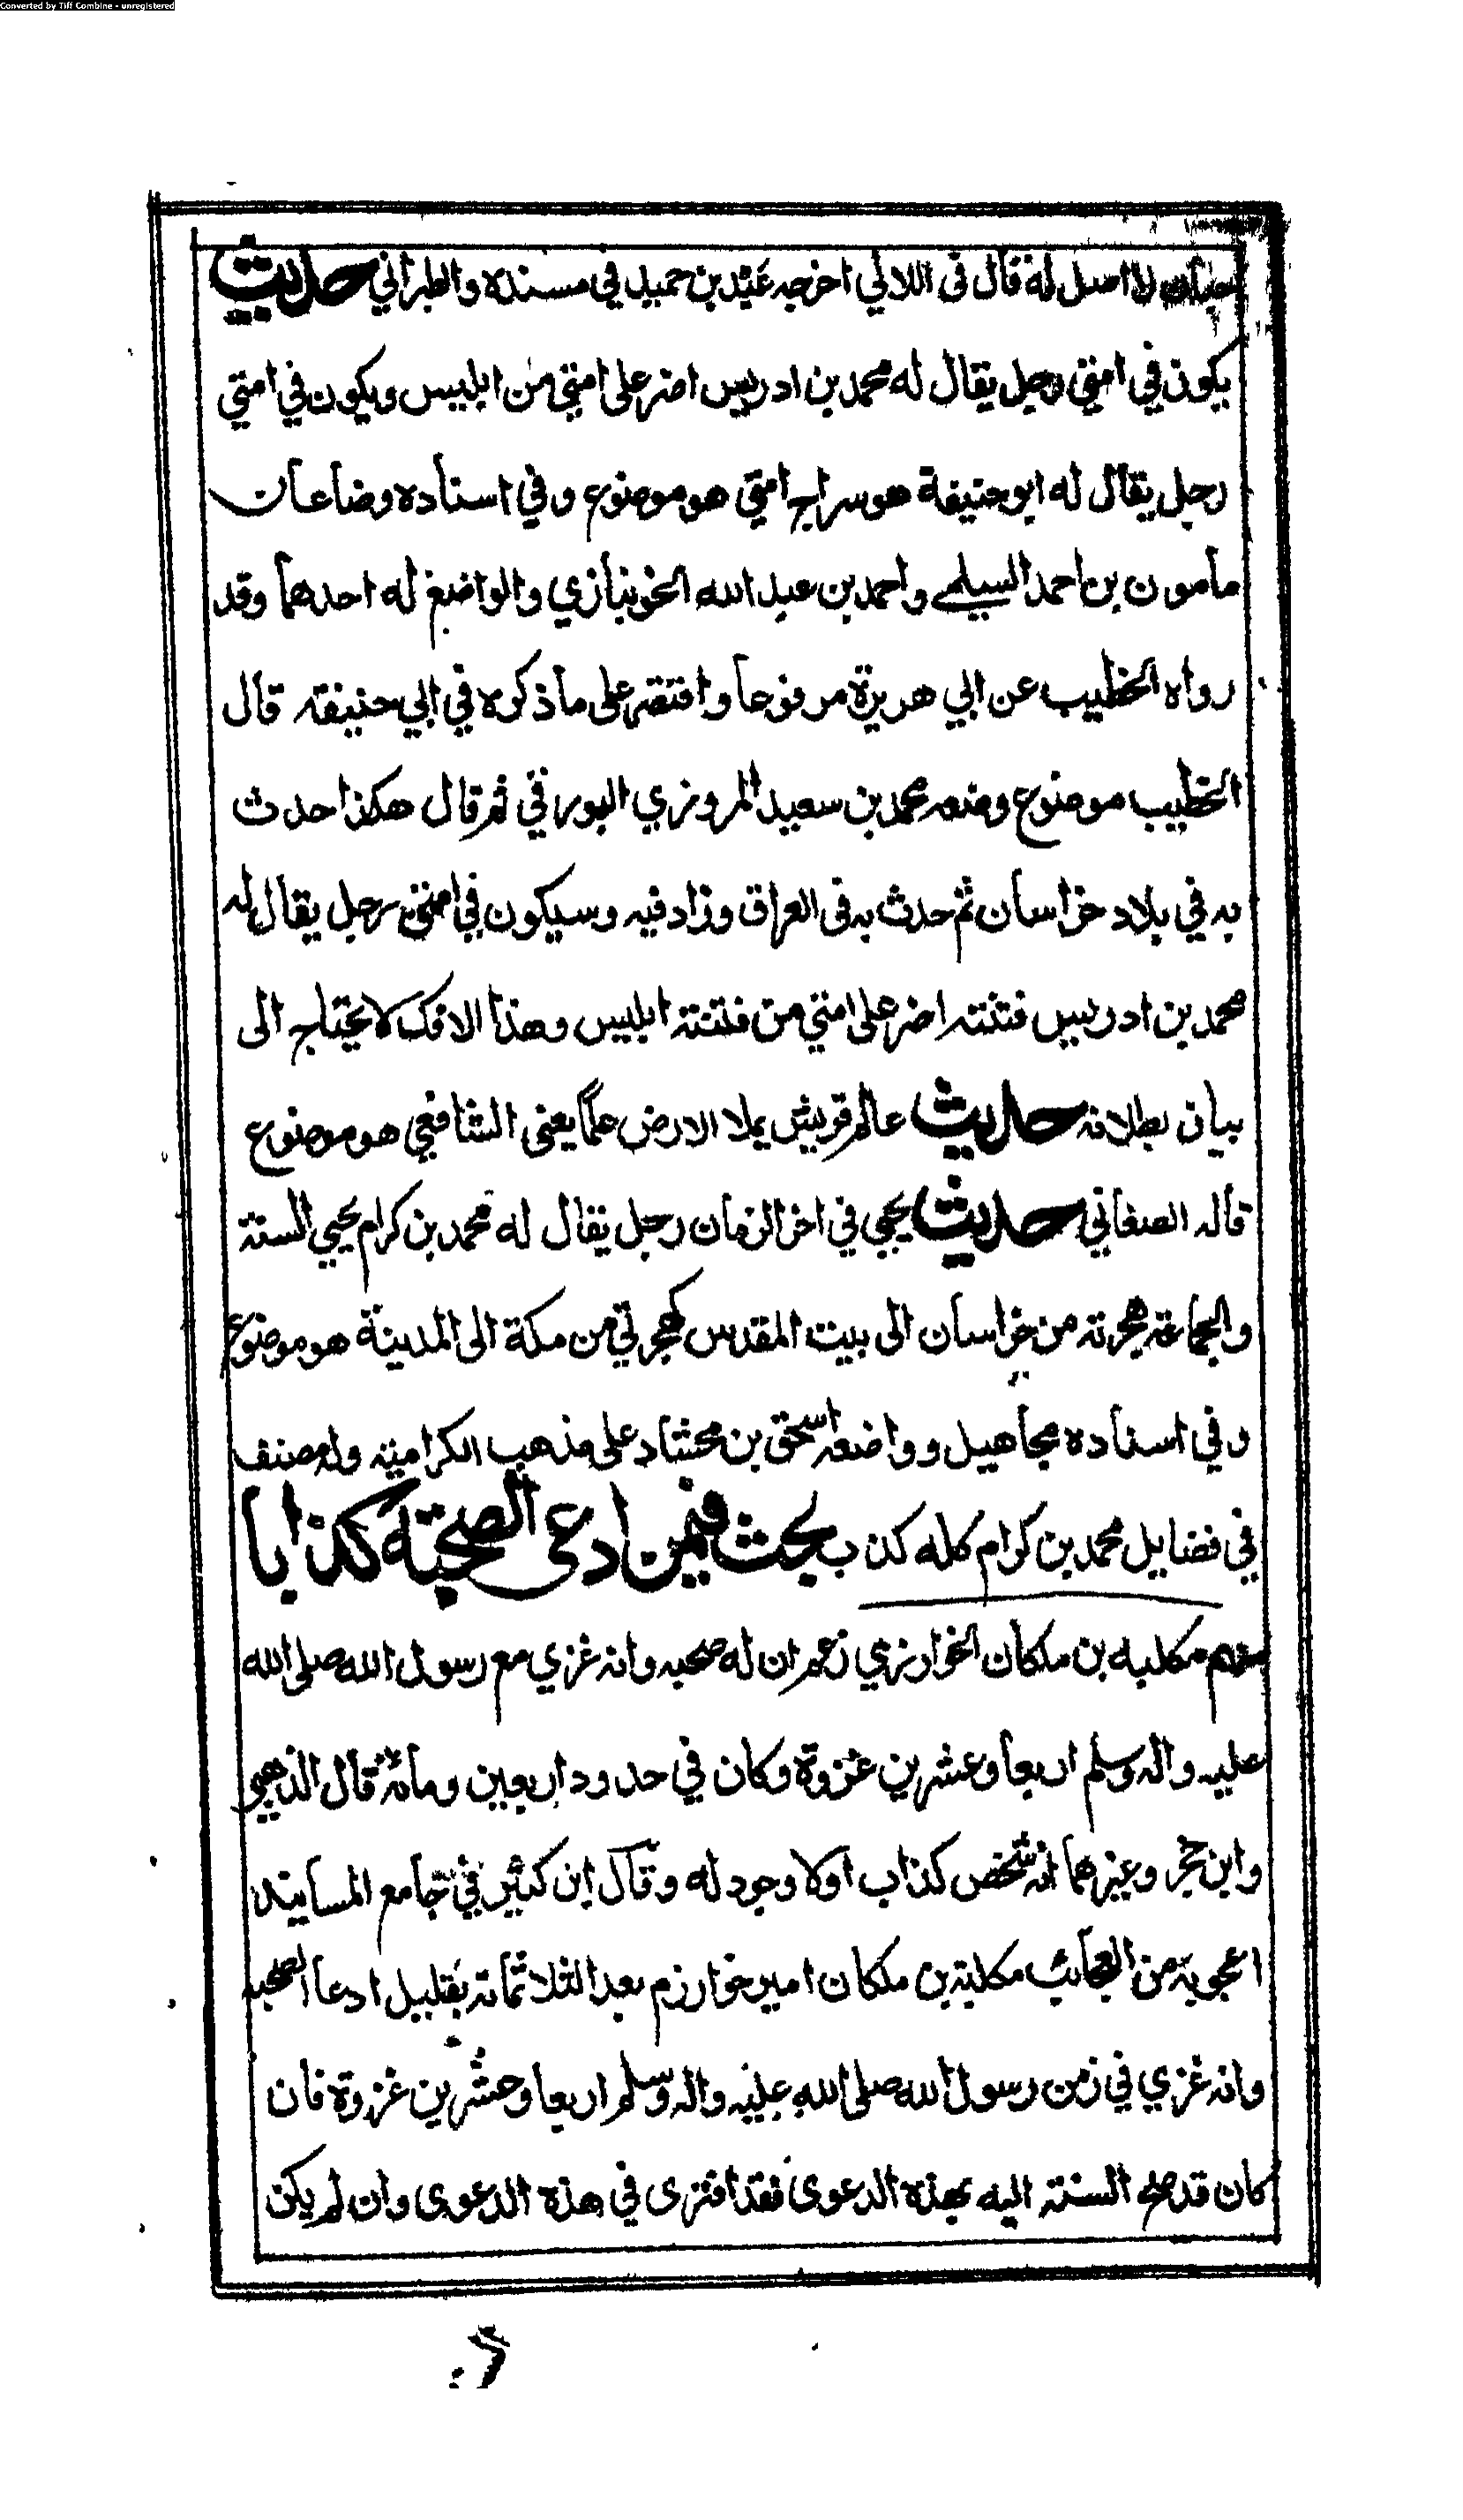 Converted by Tiff Combine - unregistered
لا اصل له قال فى اللالي اخرجه عبد بن حميد في مسنده والطبراني حديث
يكون في امتي رجل يقال له محمد بن ادريس اضر على امتي من ابليس ويكون في امتي
رجل يقال له ابو حنيفة هو سراج امتي هو موضوع وفي اسناده وضاعان
مامون بن احمد السيلمي واحمد بن عبد الله الخوبنازي والواضع له احدهما وقد
رواه الخطيب عن ابي هريرة مرفوعا واقتصر على ما ذكره في ابي حنيفة قال
الخطيب موضوع وضعه محمد بن سعيد المروزي البورقي ثم قال هكذا حدث
به في بلاد خراسان ثم حدث به فى العراق وزاد فيه وسيكون في امتي رجل يقال له
محمد بن ادريس فتنته اضر على امتي من فتنة ابليس وهذا الافك لا يحتاج الى
بيان بطلانه حديث عالم قريش يملا الارض علما يعنى الشافعي هو موضوع
قاله الصغاني حديث يجي في اخر الزمان رجل يقال له محمد بن كرام يحيي السنة
والجماعة هجرته من خراسان الى بيت المقدس كهجرتي من مكة الى المدينة هو موضوع
وفي اسناده مجاهيل وواضعه اسحق بن محشاد على مذهب الكرامية وله مصنف
في فضايل محمد بن كرام كله كذب بحث فيمن ادعى الصحبة كذابا
منهم مكلبه بن ملكان الخوارزمي زعم ان له صحبه وانه غزي مع رسول الله صلى الله
عليه واله وسلم اربعا وعشرين غزوة وكان في حدود اربعين ومائة قال الذهبي
وابن حجر وغيرهما انه شخص كذاب اولا وجود له وقال ابن كثير في جامع المسانيد
اعجوبة من العجائب مكلبة بن ملكان امير خوارزم بعد الثلاثمائة بقليل ادعا الصحبه
وانه غزي في زمن رسول الله صلى الله عليه واله وسلم اربعا وعشرين غزوة فان
كان قد صح السنة اليه بهذه الدعوى فقد افترى في هذه الدعوى وان لم يكن